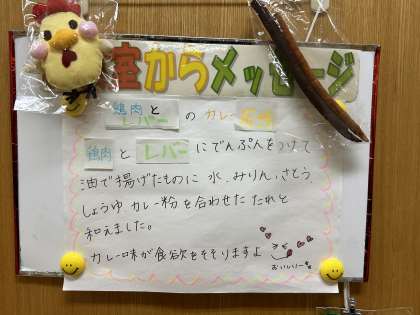 室からメッセージ
鶏肉と
レバーの カレー
鶏肉 と レバー にでんぷんをつけて
油で揚げたものに 水、みりん、さとう、
しょうゆ、カレー粉を合わせた たれと
和えました。
カレー味が食欲をそそりますよ
おいしいー